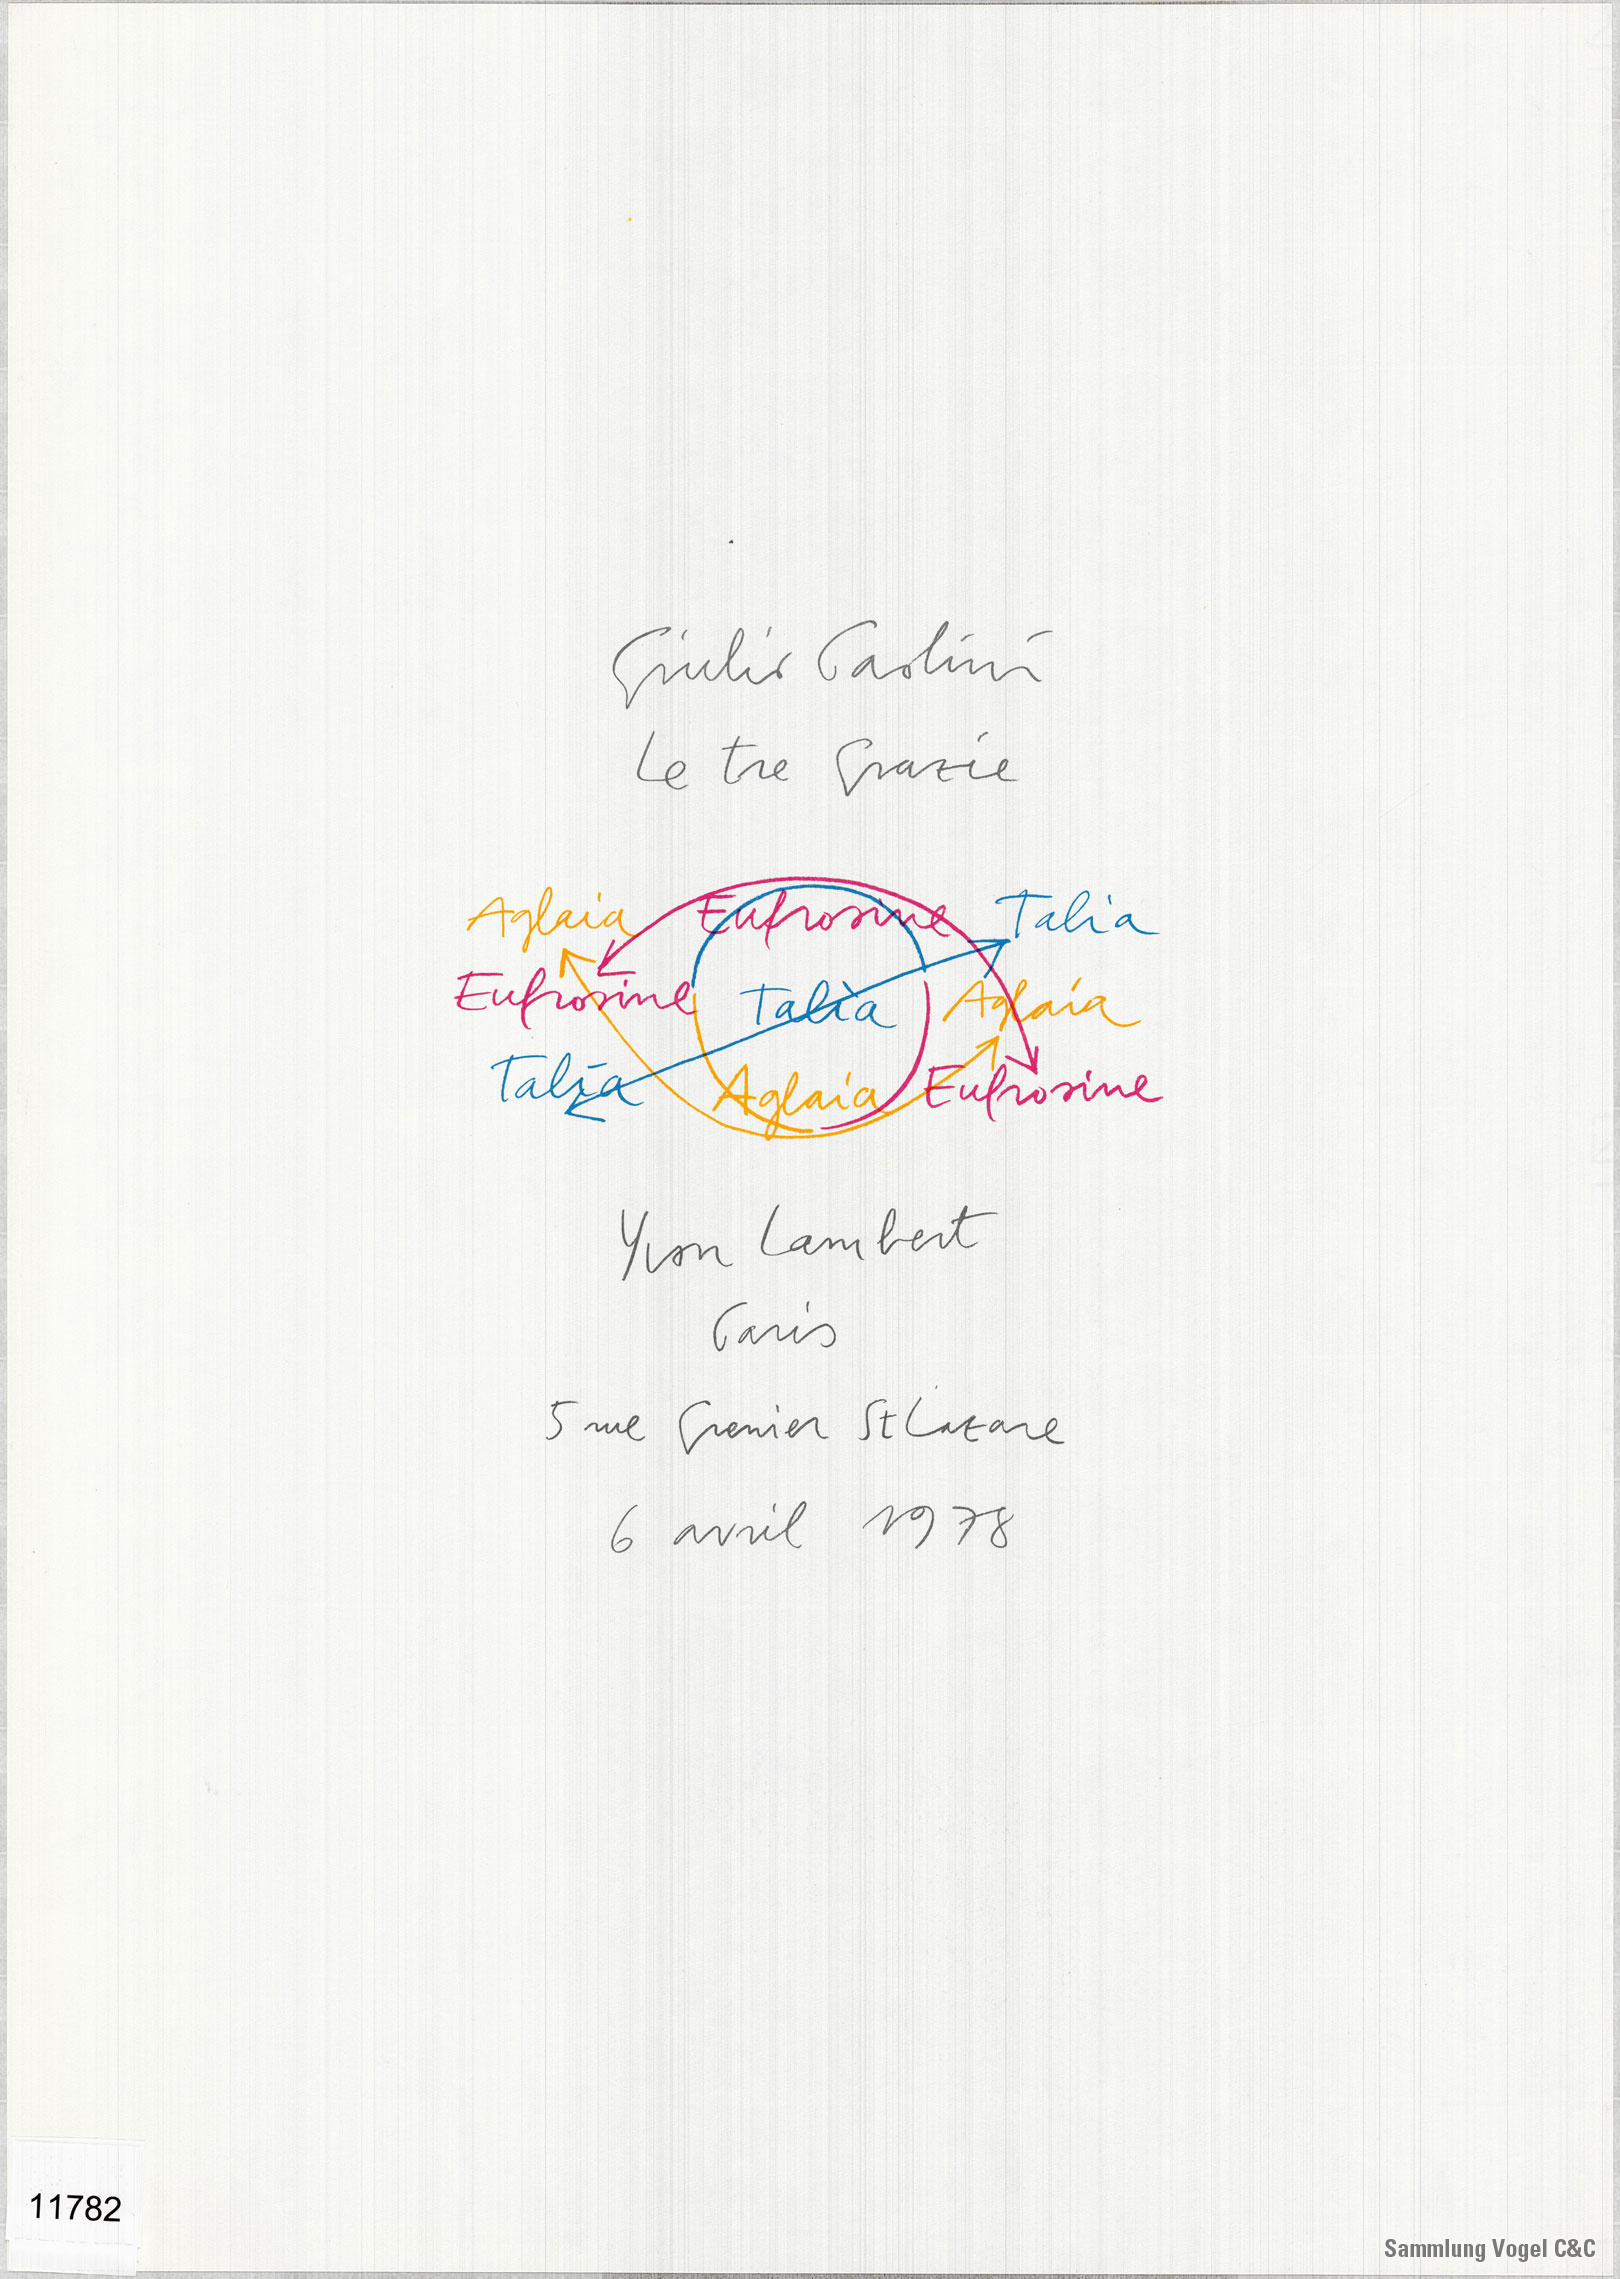 Giulio Paolini
Le tre Grazie
Aglaia Eufrosine Talia
Eufrosine Talia Aglaia
Talia Aglaia Eufrosine
Yvon Lambert
Paris
5 rue Grenier St Lazare
6 avril 1978
11782
Sammlung Vogel C&C